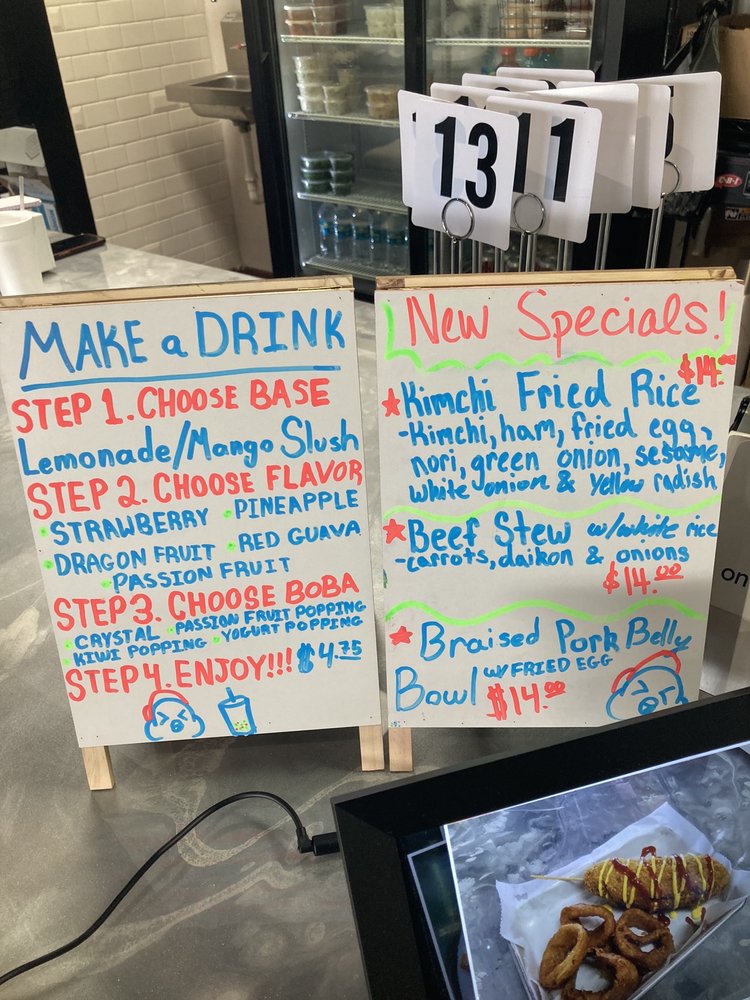 13
11
MAKE a DRINK
STEP 1. CHOOSE BASE
Lemonade/Mango Slush
STEP 2. CHOOSE FLAVOR
• STRAWBERRY • PINEAPPLE
• DRAGON FRUIT • RED GUAVA
• PASSION FRUIT
STEP 3. CHOOSE BOBA
• CRYSTAL • PASSION FRUIT POPPING
• KIWI POPPING • YOGURT POPPING
STEP 4. ENJOY!!! $4.75
New Specials!
$14.00
Kimchi Fried Rice
-Kimchi, ham, fried egg,
nori, green onion, sesame,
white onion & yellow radish
Beef Stew w/white rice
-carrots, daikon & onions
$14.00
Braised Pork Belly
Bowl w/ FRIED EGG
$14.00
on